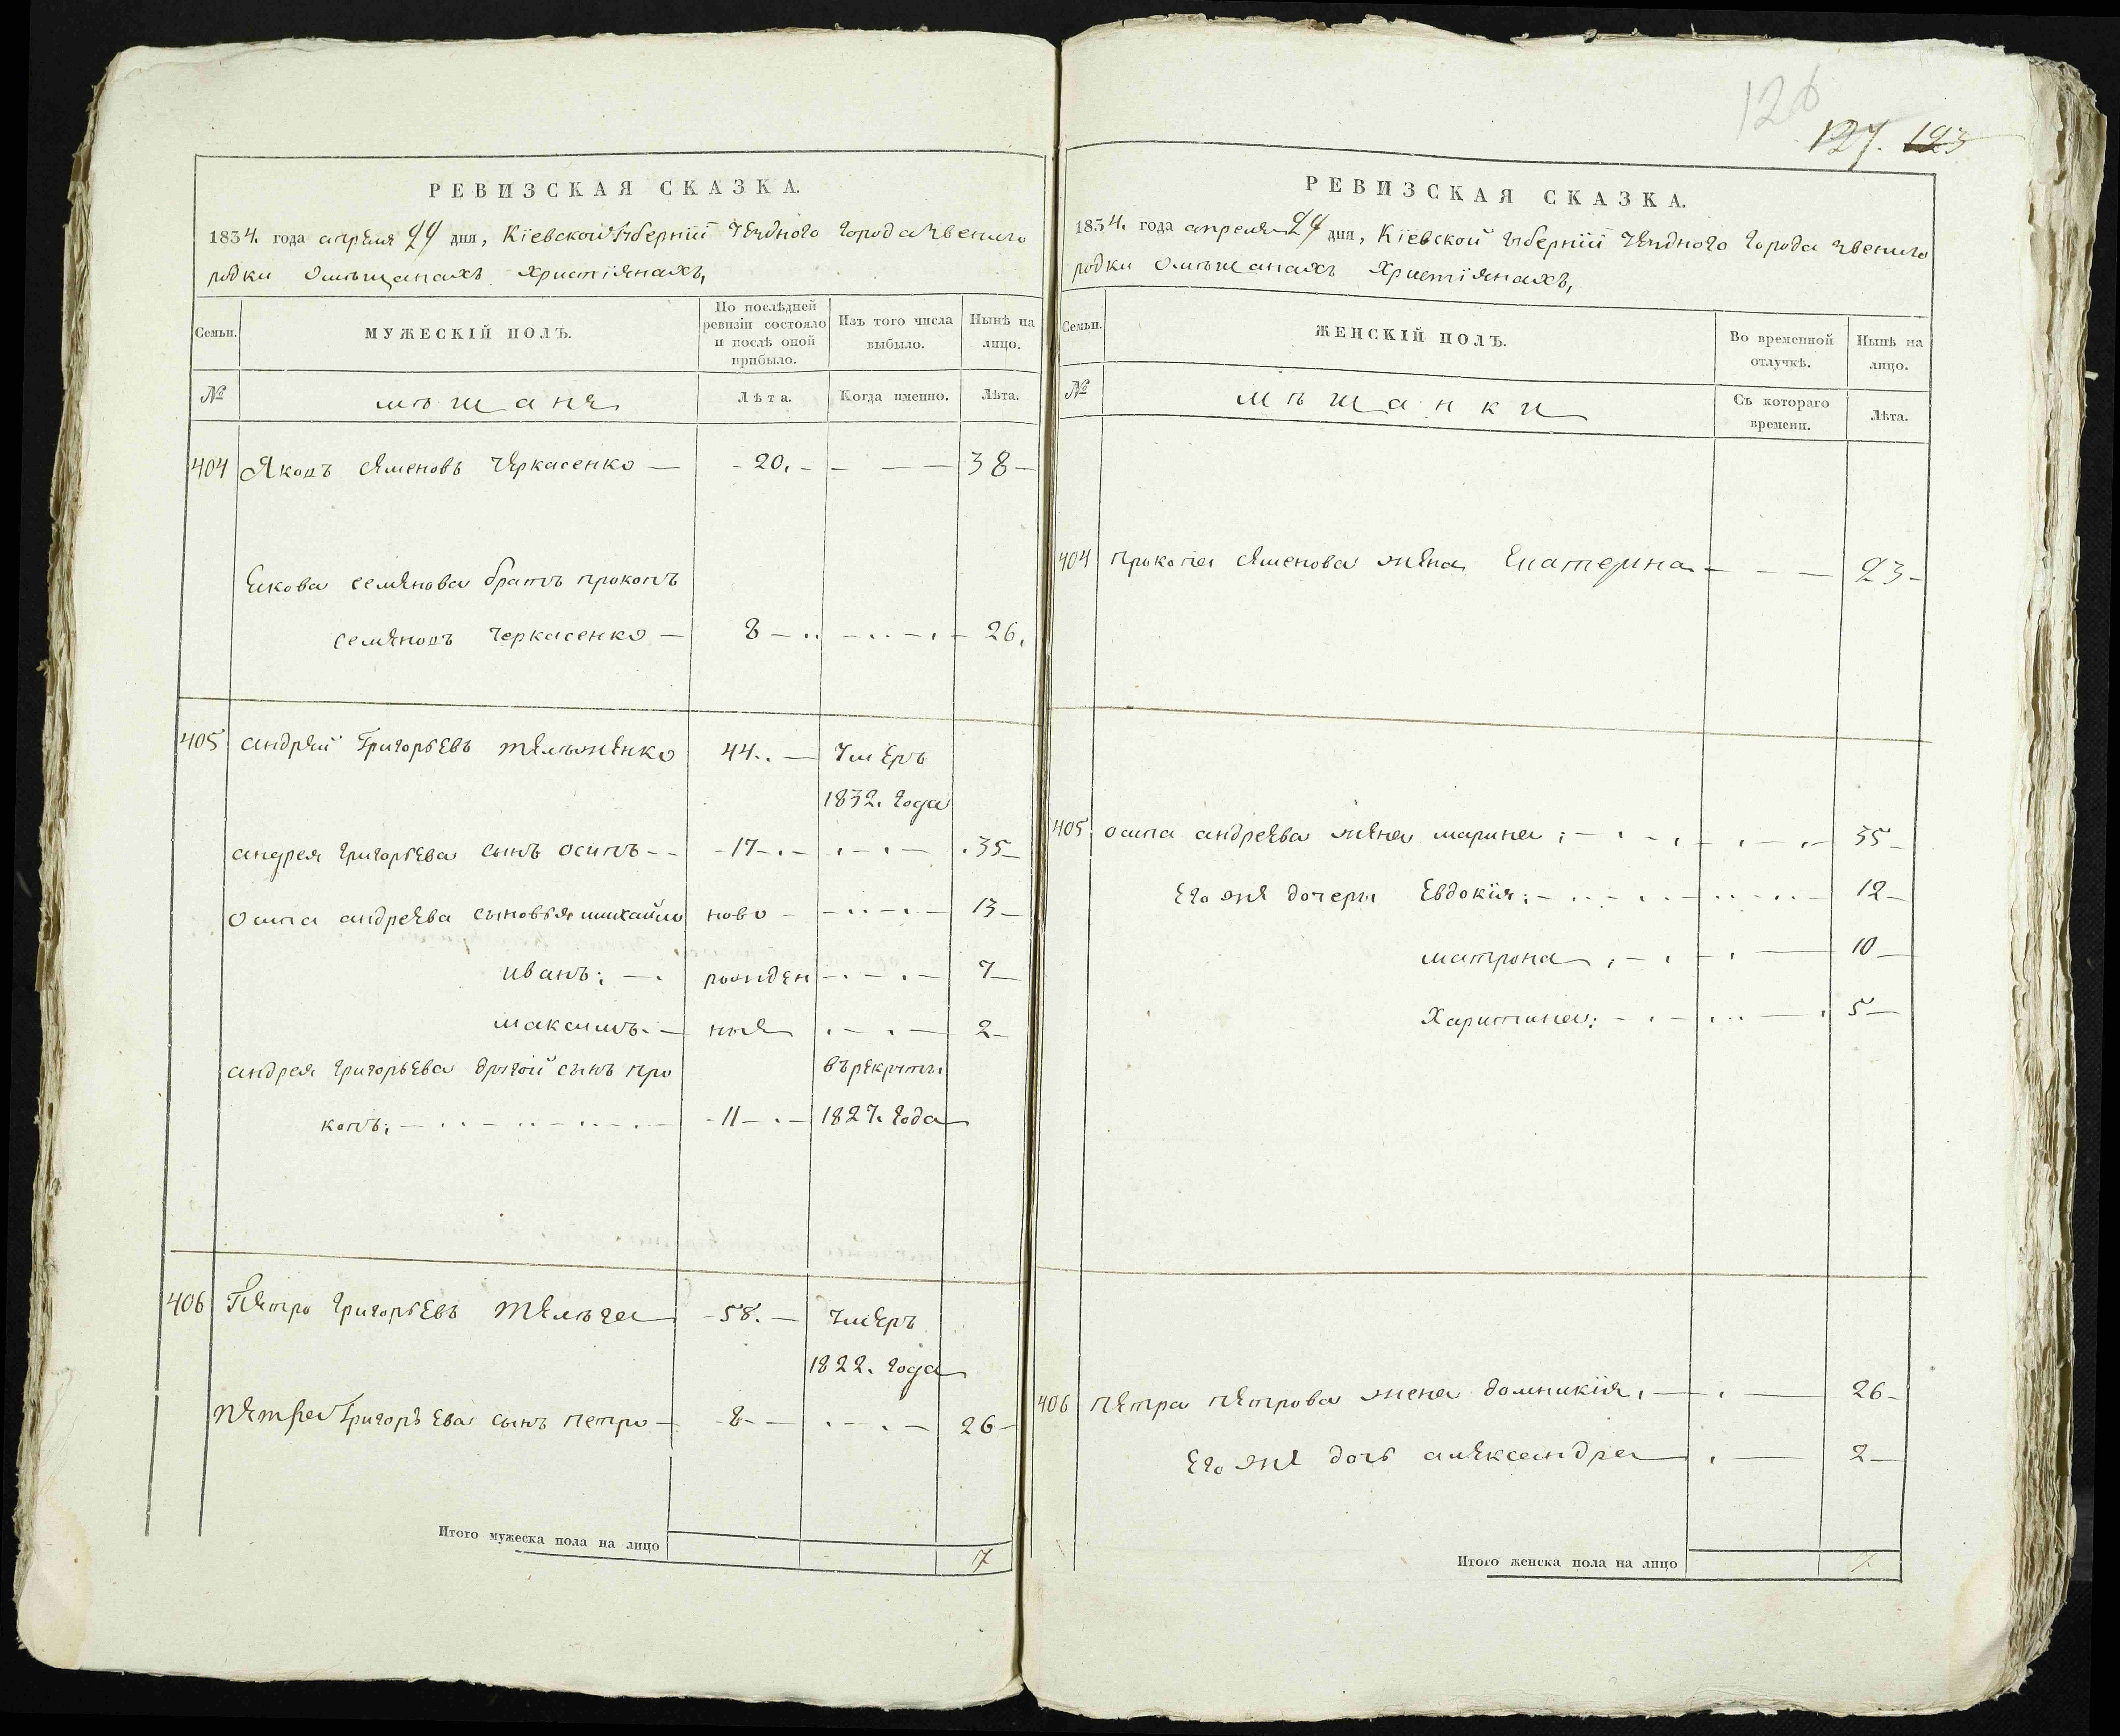 126
127. 123
РЕВИЗСКАЯ СКАЗКА.
1834. года апреля 24 дня, Кіевской Губерніи уезднаго города Звениго
родки о мѣщанахъ христіянахъ,
Семьи.
МУЖЕСКІЙ ПОЛЪ.
По послѣдней ревизіи состояло и послѣ оной прибыло.
Изъ того числа выбыло.
Нынѣ на лицо.
№
мѣщане
Лѣта.
Когда именно.
Лѣта.
404 Яковъ Семеновъ Черкасенко — - 20. - - — — 38 -
Якова семенова братъ прокопъ
семеновъ черкасенко — 8 — 26.
405 андрей Григорьевъ 44. — умеръ
1832. года
андрея григорьева сынъ осипъ - - - 17 - . - 35 -
осипа андреева сыновья михайло ново - 13 -
иванъ; — рожден 7 -
максимъ. — ные 2 -
андрея григорьева другой сынъ про въ рекруты
копъ; — - 11 - . - 1827. года
406 Петро григорьевъ - 58. — умеръ
1822. года
петра Григорьева сынъ петро — - 8 - — 26 -
Итого мужеска пола на лицо 7
РЕВИЗСКАЯ СКАЗКА.
1834. года апреля 24 дня, Кіевской губерніи уезднаго города звениго
родки о мѣщанахъ христіянахъ,
Семьи.
ЖЕНСКІЙ ПОЛЪ.
Во временной отлучкѣ.
Нынѣ на лицо.
№
мѣщанки
Съ котораго времени.
Лѣта.
404 прокопа семенова жена Екатерина - — — 23 -
405 осипа андреева жена марина ; — 35 -
его же дочери Евдокія; - 12 -
матрона , - 10 -
Харитина; - 5 -
406 петра петрова жена домникія, — 26 -
его же дочь александра — 2 -
Итого женска пола на лицо 7